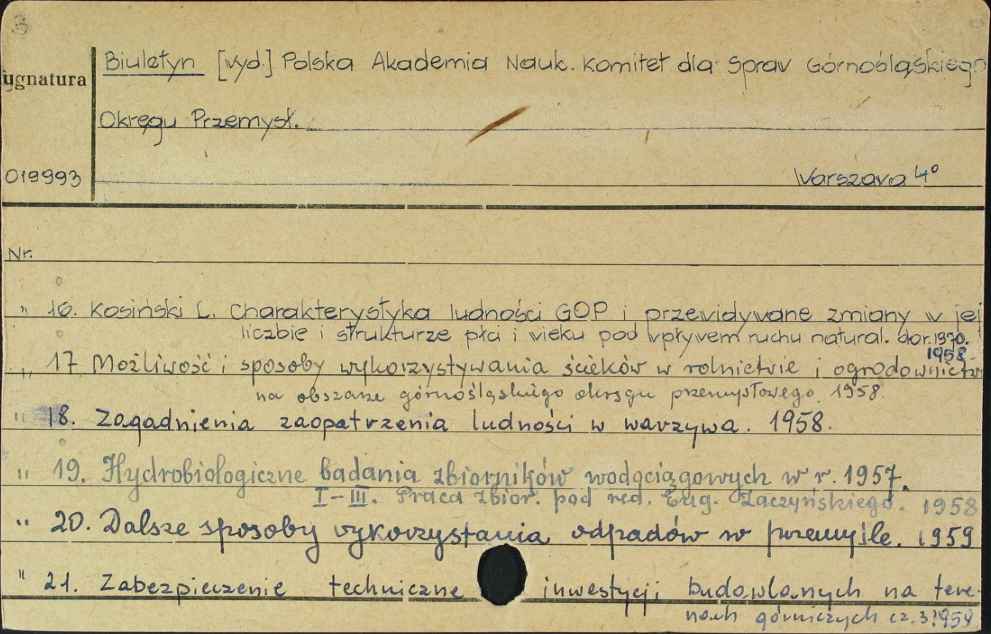 Biuletyn [wyd.] Polska Akademia Nauk. Komitet dla Spraw Górnośląskiego
ygnatura
Okręgu Przemysł.
019993
Warszawa 4°
Nr.
" 16. Kosiński L. Charakterystyka ludności GOP i przewidywane zmiany w jej
liczbie i strukturze płci i wieku pod wpływem ruchu natural. do r. 1970.
1958.
" 17 Możliwość i sposoby wykorzystywania ścieków w rolnictwie i ogrodownictwie
na obszarze górnośląskiego okręgu przemysłowego. 1958.
" 18. Zagadnienia zaopatrzenia ludności w warzywa. 1958.
" 19. Hydrobiologiczne badania zbiorników wodociągowych w r. 1957.
I-III. Praca zbior. pod red. Eug. Zaczyńskiego. 1958
" 20. Dalsze sposoby wykorzystania odpadów w przemyśle. 1959
" 21. Zabezpieczenie techniczne inwestycji budowlanych na tere-
nach górniczych cz. 3. 1959